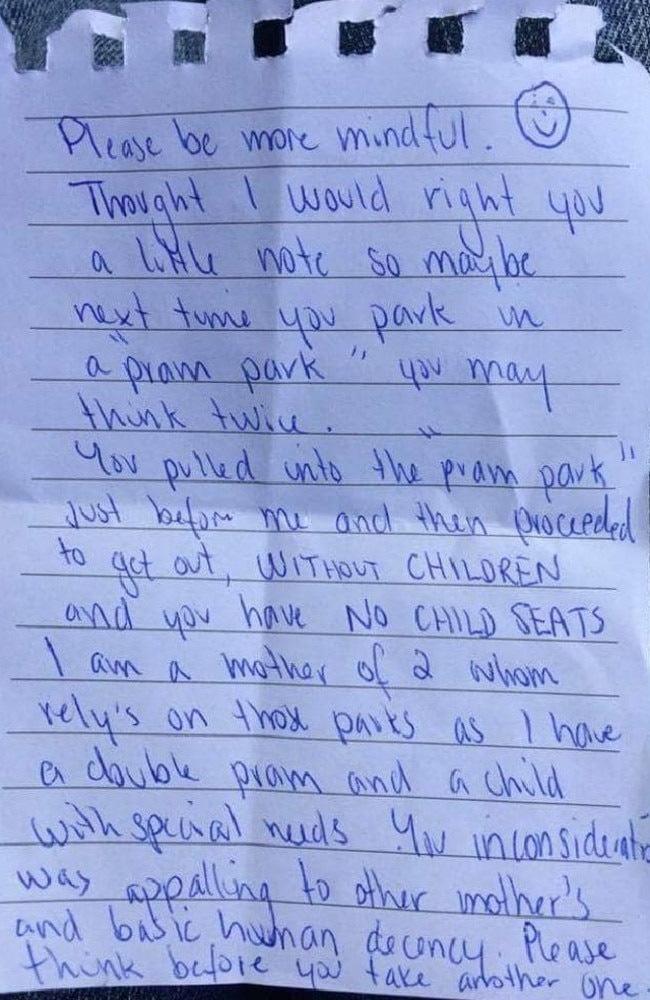 Please be more mindful.
Thought I would right you
a little note so maybe
next time you park in
a "pram park" you may
think twice.
You pulled into the "pram park"
just before me and then proceeded
to get out, WITHOUT CHILDREN
and you have NO CHILD SEATS
I am a mother of 2 whom
rely's on those parks as I have
a double pram and a child
with special needs You
was appalling to other mother's
and basic human decency. Please
think before you take another one.